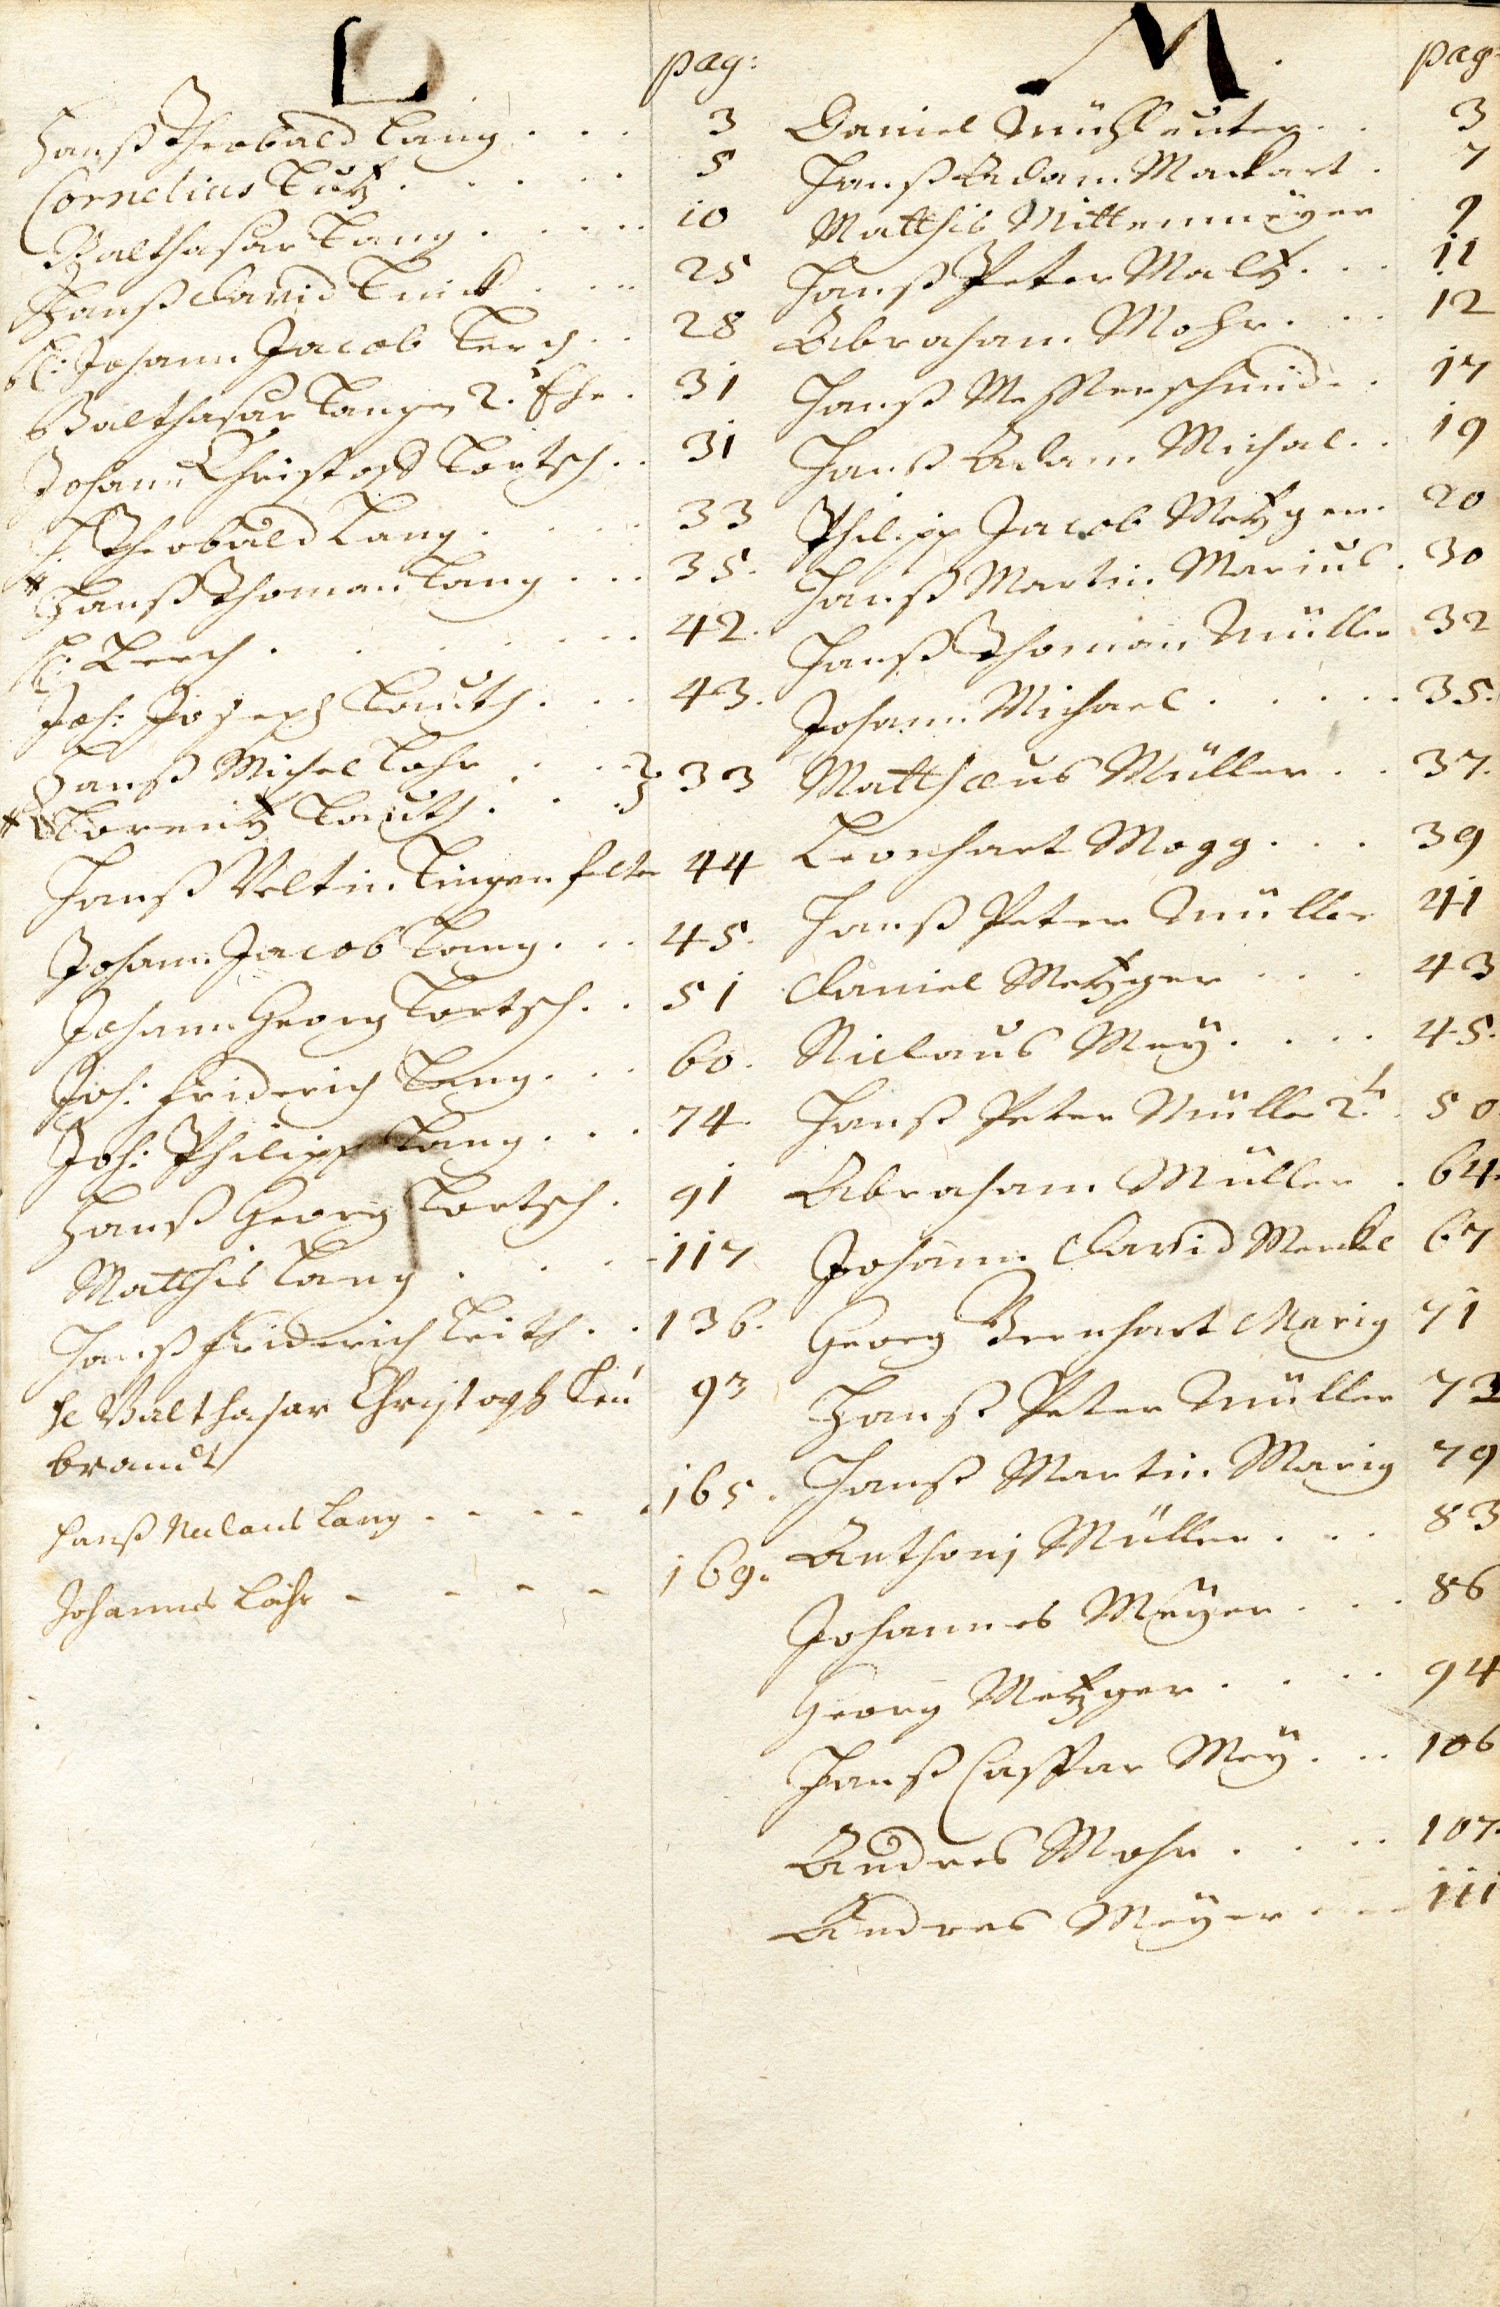 L
pag:
Hanß Theobald Lang . . . 3
Cornelius Lutz . . . . . 5
Balthasar Lang . . . . . 10
Hanß David Linck . . . . 25
H: Johann Jacob Lerch . . 28
Balthasar Langen 2. Ehe . 31
Johann Christoph Lortsch . . 31
H. Theobald Lang . . . . 33
Hanß Thoman Lang . . . 35.
H: Lerch . . . . . . . 42.
Joh: Joseph Lauth . . . 43.
Hanß Michel Lohr . . .
Lorentz Lauth . . . 33
Hanß Veltin Lingenfelter 44
Johann Jacob Lang . . . 45.
Johann Georg Lortsch . . 51
Joh: Friderich Lang . . . 60.
Joh: Philipp Lang . . . 74.
Hanß Georg Lortsch . 91
Matthis Lang . . . . 117
Hanß Friderich Leith . . 136.
H Balthasar Christoph Leu 93
brandt
Hanß Niclaus Lang - - - - 165.
Johannes Löhr - - - - 169.
M.
pag:
Daniel Mühleuter . . 3
Hanß Adam Mackart . 7
Matthis Mittenmeyer 9
Hanß Peter Maltz . . . 11
Abraham Mohr . . . 12
Hanß Messerschmid . . 17
Hanß Adam Michal . . 19
Philipp Jacob Metzger . 20
Hanß Martin Marius . 30
Hanß Thoman Müller 32
Johann Michael . . . . . 35.
Matthæus Müller . . 37.
Leonhart Mogg . . . 39
Hanß Peter Müller 41
Daniel Metzger . . . 43
Niclaus Mey . . . . 45.
Hanß Peter Müller 2. . 50
Abraham Müller . 64.
Johann David Merckel 67
Georg Bernhart Marig 71
Hanß Peter Müller 73
Hanß Martin Marig 79
Anthonj Müller . . . 83
Johannes Meyer . . . 86
Georg Metzger . . . . 94
Hanß Caspar Mey . . . 106
Andres Mohr . . . . 107.
Andres Meyer - - - 111